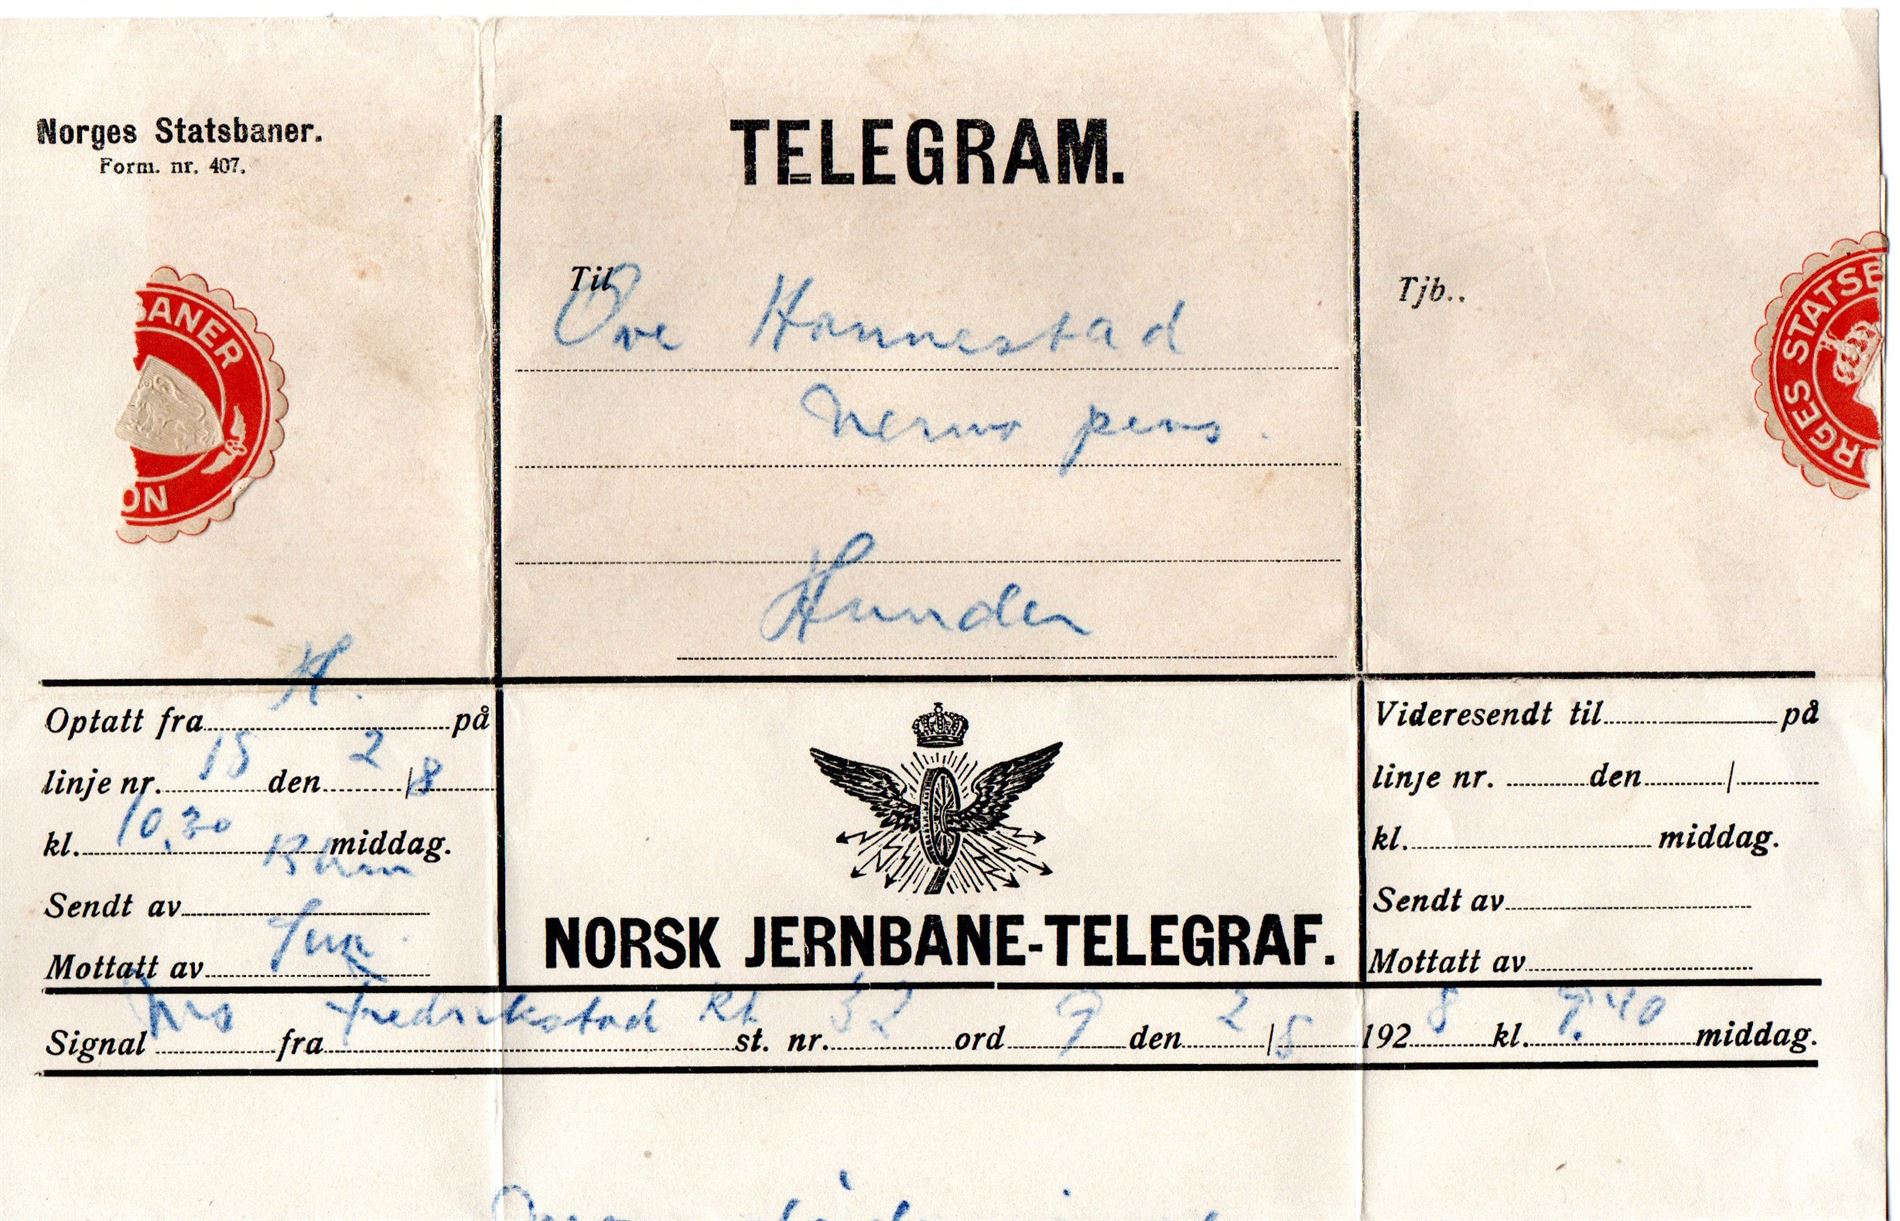 Norges Statsbaner.
Form. nr. 407.
TELEGRAM.
Til Ove Hannestad
pens.
Hunder
Tjb..
BANER
ON
RGES STATSB
Optatt fra H. på
linje nr. 15 den 2/8
kl. 10,30 middag.
Sendt av
Mottatt av
NORSK JERNBANE-TELEGRAF.
Videresendt til på
linje nr. den /
kl. middag.
Sendt av
Mottatt av
Signal fra Fredrikstad st. nr. 52 ord 9 den 2/8 1928 kl. 9.40 middag.